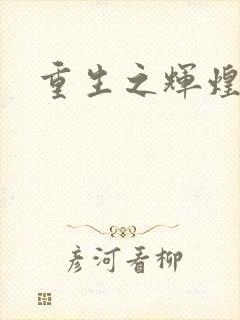 重生之辉煌
彦河看柳